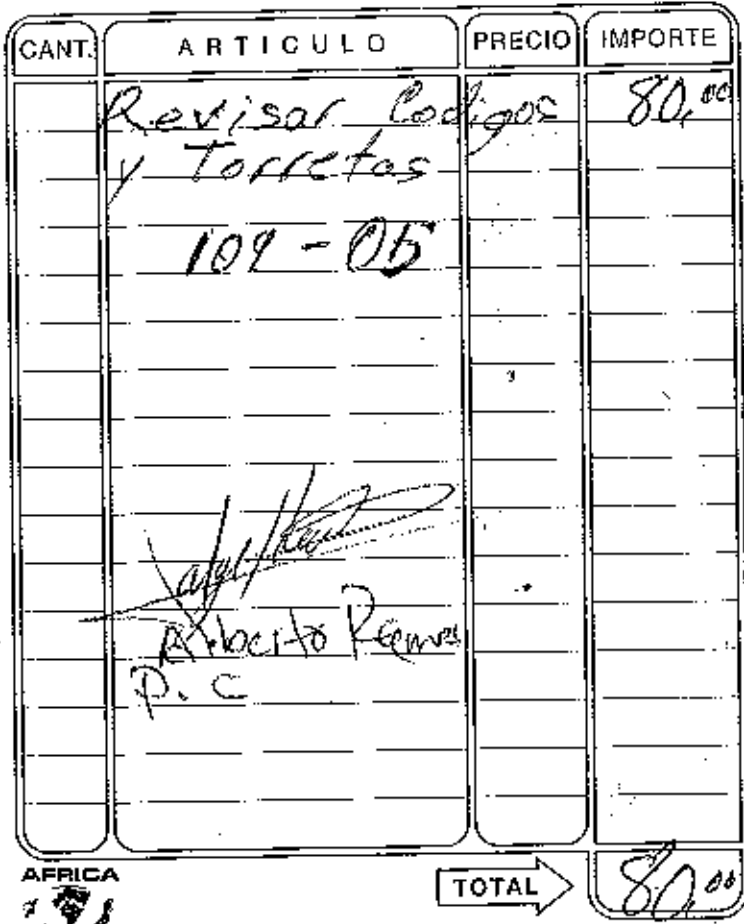 CANT. ARTICULO PRECIO IMPORTE
Revisar Codigos 80,00
y Torretas
109-05
Alberto Ramos
P. C
AFRICA
TOTAL 80,00